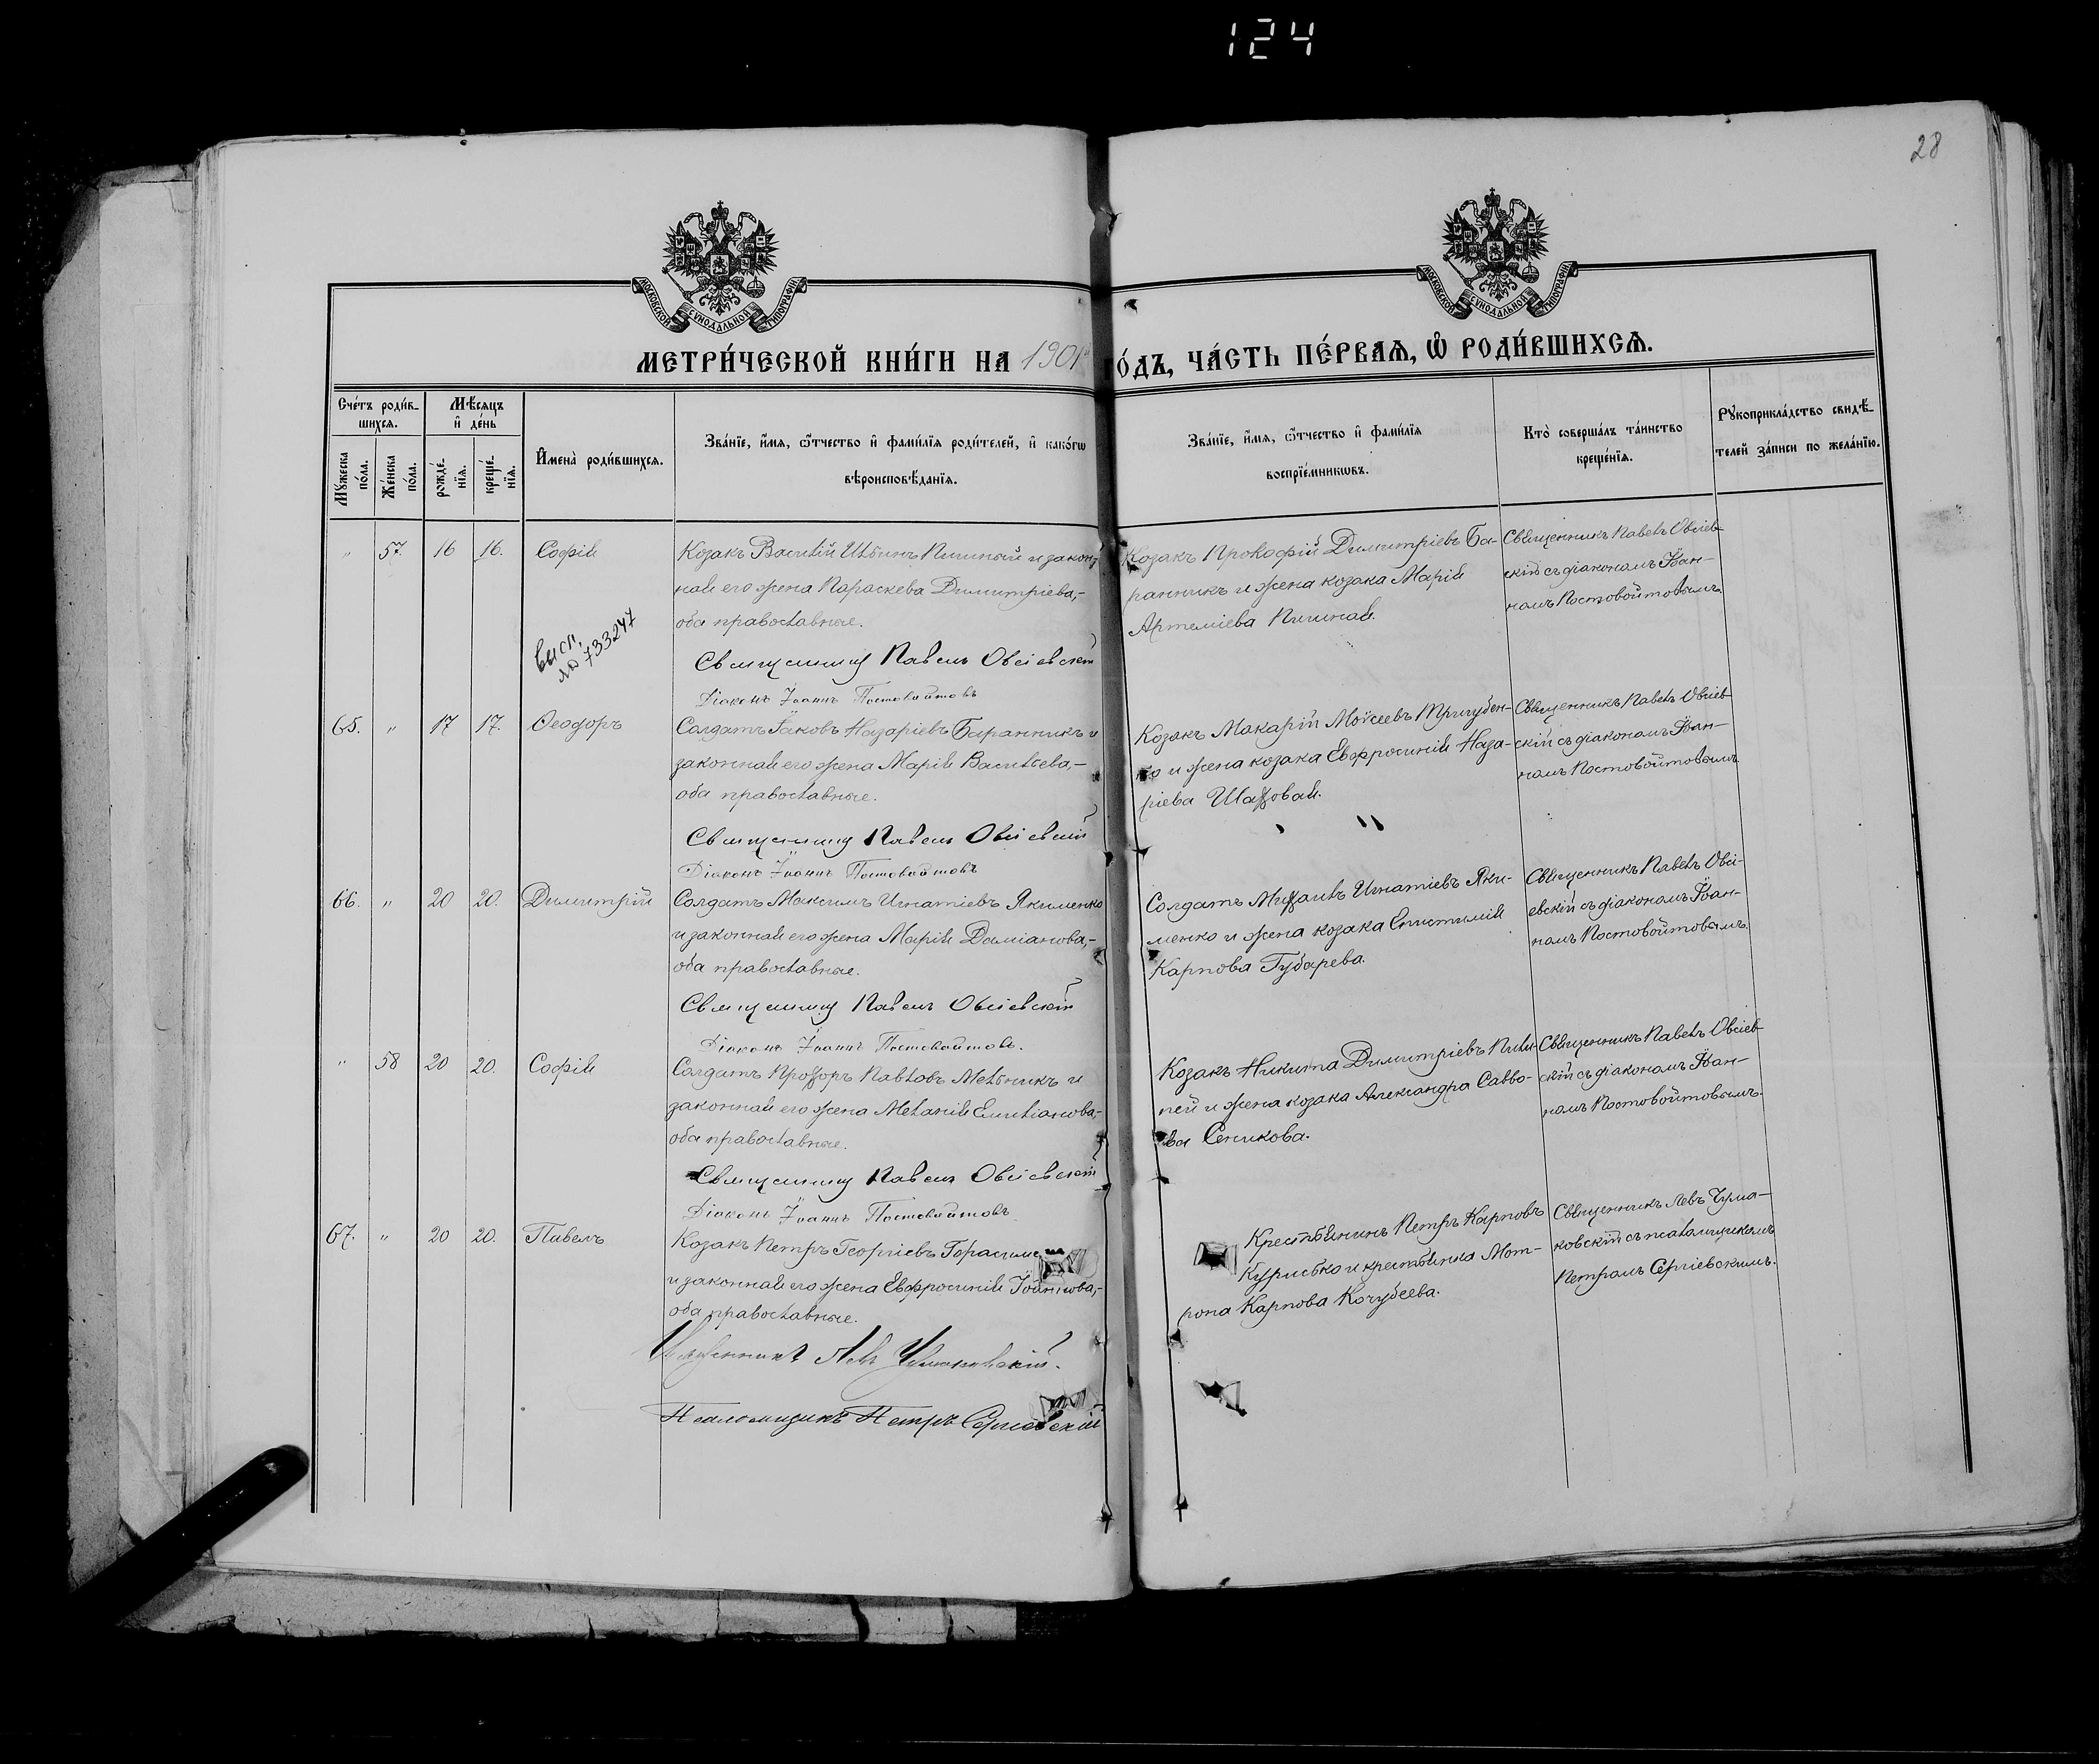 124
28
МОСКОВСКОЙ СУНОДАЛЬНОЙ ТИПОГРАФІИ
МОСКОВСКОЙ СУНОДАЛЬНОЙ ТИПОГРАФІИ
МЕТРИ́ЧЕСКОЙ КНИ́ГИ НА 1901й
О́ДЪ, ЧА́СТЬ ПЕ́РВАѦ, Ѽ РОДИ́ВШИХСѦ.
Сче́тъ роди́в-
шихсѧ.
Мѣ́сяцъ
и҆ де́нь
Мꙋжеска по́ла.
Же́нска по́ла.
рожде́-
нїѧ.
креще́-
нїѧ.
И҆мена̀ роди́вшихсѧ.
Зва́нїе, и҆́мѧ, ѻ҆́тчество и҆ фами́лїѧ роди́телей, и҆ како́гѡ
вѣроисповѣ́данїѧ.
Зва́нїе, и҆́мѧ, ѻ҆́тчество и҆ фами́лїѧ
воспрїе́мникѡвъ.
Кто̀ соверша́лъ та́инство
креще́нїѧ.
Рꙋкоприкла́дство свидѣ́-
телей за́писи по жела́нїю.
" 57. 16 16. Софія
Козакъ Василій Ильинъ Пишный и закон
ная его жена Параскева Димитріева,-
оба православные.
Священникъ Павелъ Овсіевскій
Діаконъ Іоаннъ Постовойтовъ
Козакъ Прокофій Димитріевъ Ба-
ранникъ и жена козака Марія
Артеміева Пишная.
Священникъ Павелъ Овсіев-
скій съ діакономъ Іоан-
номъ Постовойтовымъ.
висл.
на 733247
65. " 17 17. Ѳеодоръ
Солдатъ Іаковъ Назаріевъ Баранникъ и
законная его жена Марія Васильева,-
оба православные.
Священникъ Павелъ Овсіевскій
Діаконъ Іоаннъ Постовойтовъ
Козакъ Макарій Моѵсеевъ Тригубен-
ко и жена козака Евфросинія Наза-
ріева Шаховая.
Священникъ Павелъ Овсіев-
скій съ діакономъ Іоан-
номъ Постовойтовымъ
66. " 20 20. Димитрій
Солдатъ Максимъ Игнатіевъ Якименко
и законная его жена Марія Даміанова,-
оба православные.
Священникъ Павелъ Овсіевскій
Діаконъ Іоаннъ Постовойтовъ.
Солдатъ Михаилъ Игнатіевъ Яки-
менко и жена козака Епистимія
Карпова Губарева.
Священникъ Павелъ Овсі-
евскій съ діакономъ Іоан-
номъ Постовойтовымъ.
" 58 20 20. Софія
Солдатъ Прохоръ Павловъ Мельникъ и
законная его жена Меланія Емиліанова,-
оба православные.
Священникъ Павелъ Овсіевскій
Діаконъ Іоаннъ Постовойтовъ
Козакъ Никита Димитріевъ Пили-
пей и жена козака Александра Савво-
ва Сеникова.
Священникъ Павелъ Овсіев-
скій съ діакономъ Іоан-
номъ Постовойтовымъ.
67. " 20 20. Павелъ
Козакъ Петръ Георгіевъ Герасиме
и законная его жена Евфросинія Іоаннова,-
оба православные.
Священникъ Левъ Чумаковскій.
Псаломщикъ Петръ Сергіевскій
Крестьянинъ Петръ Карповъ
Курисько и крестьянка Мот-
рона Карпова Кочубеева.
Священникъ Левъ Чума-
ковскій съ псаломщикомъ
Петромъ Сергіевскимъ.